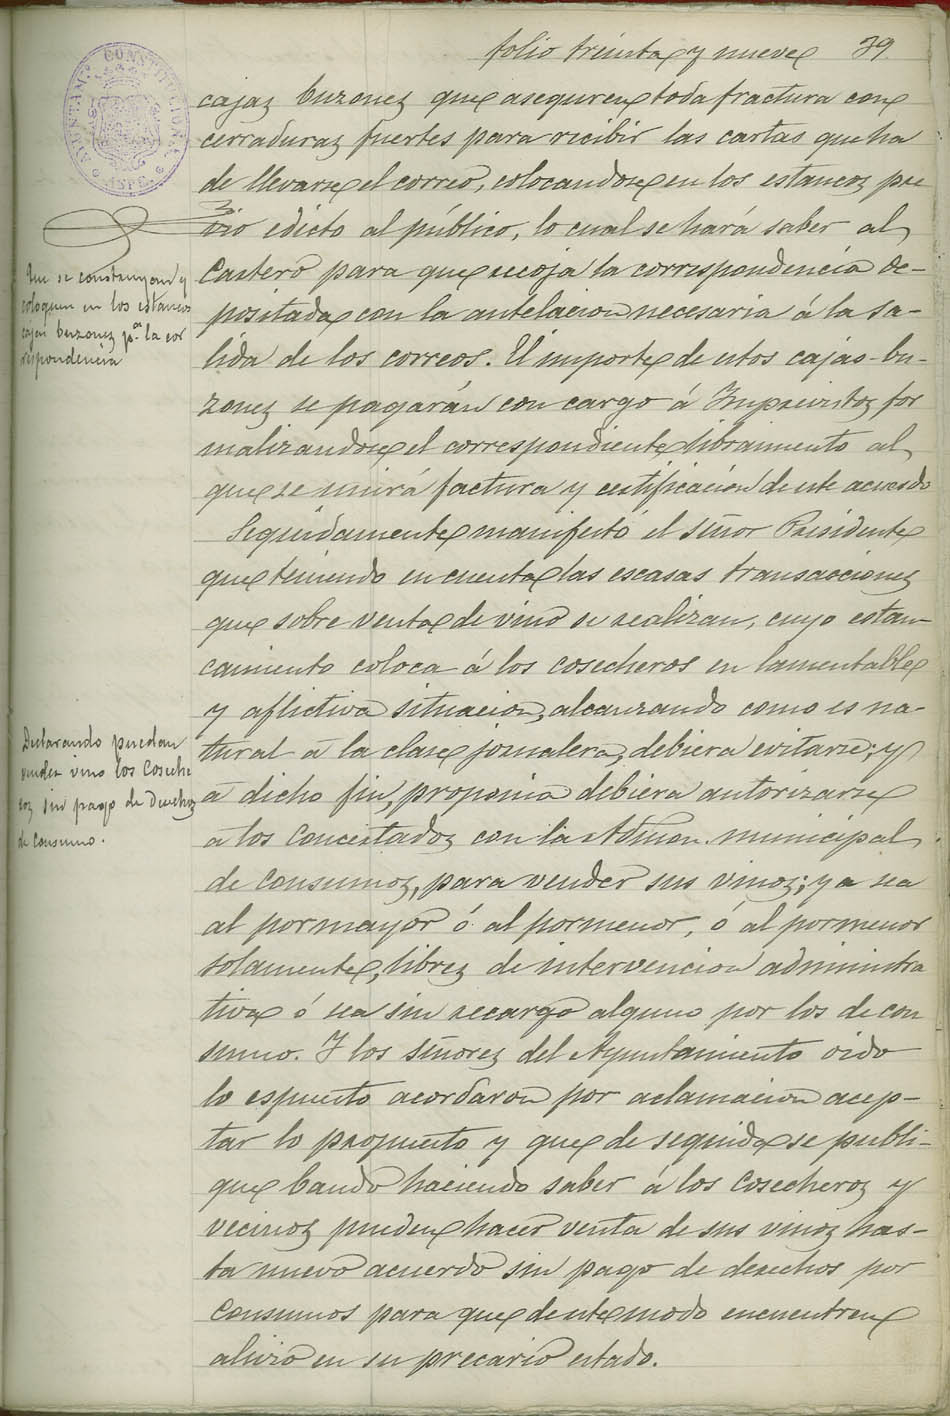 folio treinta y nueve 39.
AYUNTAM.º CONSTITUCIONAL
ASPE
cajas buzones que aseguren toda fractura con
cerraduras fuertes para recibir las cartas que ha
de llevarse el correo, colocandose en los estancos pre
vio edicto al público, lo cual se hará saber al
Cartero para que recoja la correspondencia de-
positada con la antelacion necesaria á la sa-
lida de los correos. El importe de estos cajas-bu-
zones se pagarán con cargo á Imprevistos for
malizandose el correspondiente libramiento al
que se unirá factura y certificación de este acuerdo
Que se construyan y
coloquen en los estancos
cajas buzones p.ª la cor
respondencia
Seguidamente manifestó el señor Presidente
que teniendo en cuenta las escasas transacciones
que sobre venta de vino se realizan, cuyo estan-
camiento coloca á los cosecheros en lamentable
y aflictiva situacion, alcanzando como es na-
tural á la clase jornalera, debiera evitarse; y
á dicho fin, proponia debiera autorizarse
a los Concertados con la Admon. municipal
de consumos, para vender sus vinos; ya sea
al pormayor ó al pormenor, ó al pormenor
solamente, libres de intervencion administra
tiva ó sea sin recargo alguno por los de con
sumo. Y los señores del Ayuntamiento oido
lo espuesto acordaron por aclamacion acep-
tar lo propuesto y que de seguida se publi-
que bando haciendo saber á los Cosecheros y
vecinos pueden hacer venta de sus vinos has-
ta nuevo acuerdo sin pago de derechos por
Consumos para que de este modo encuentren
alivio en su precario estado.
Declarando puedan
vender vino los Coseche
ros sin pago de derechos
de consumo.